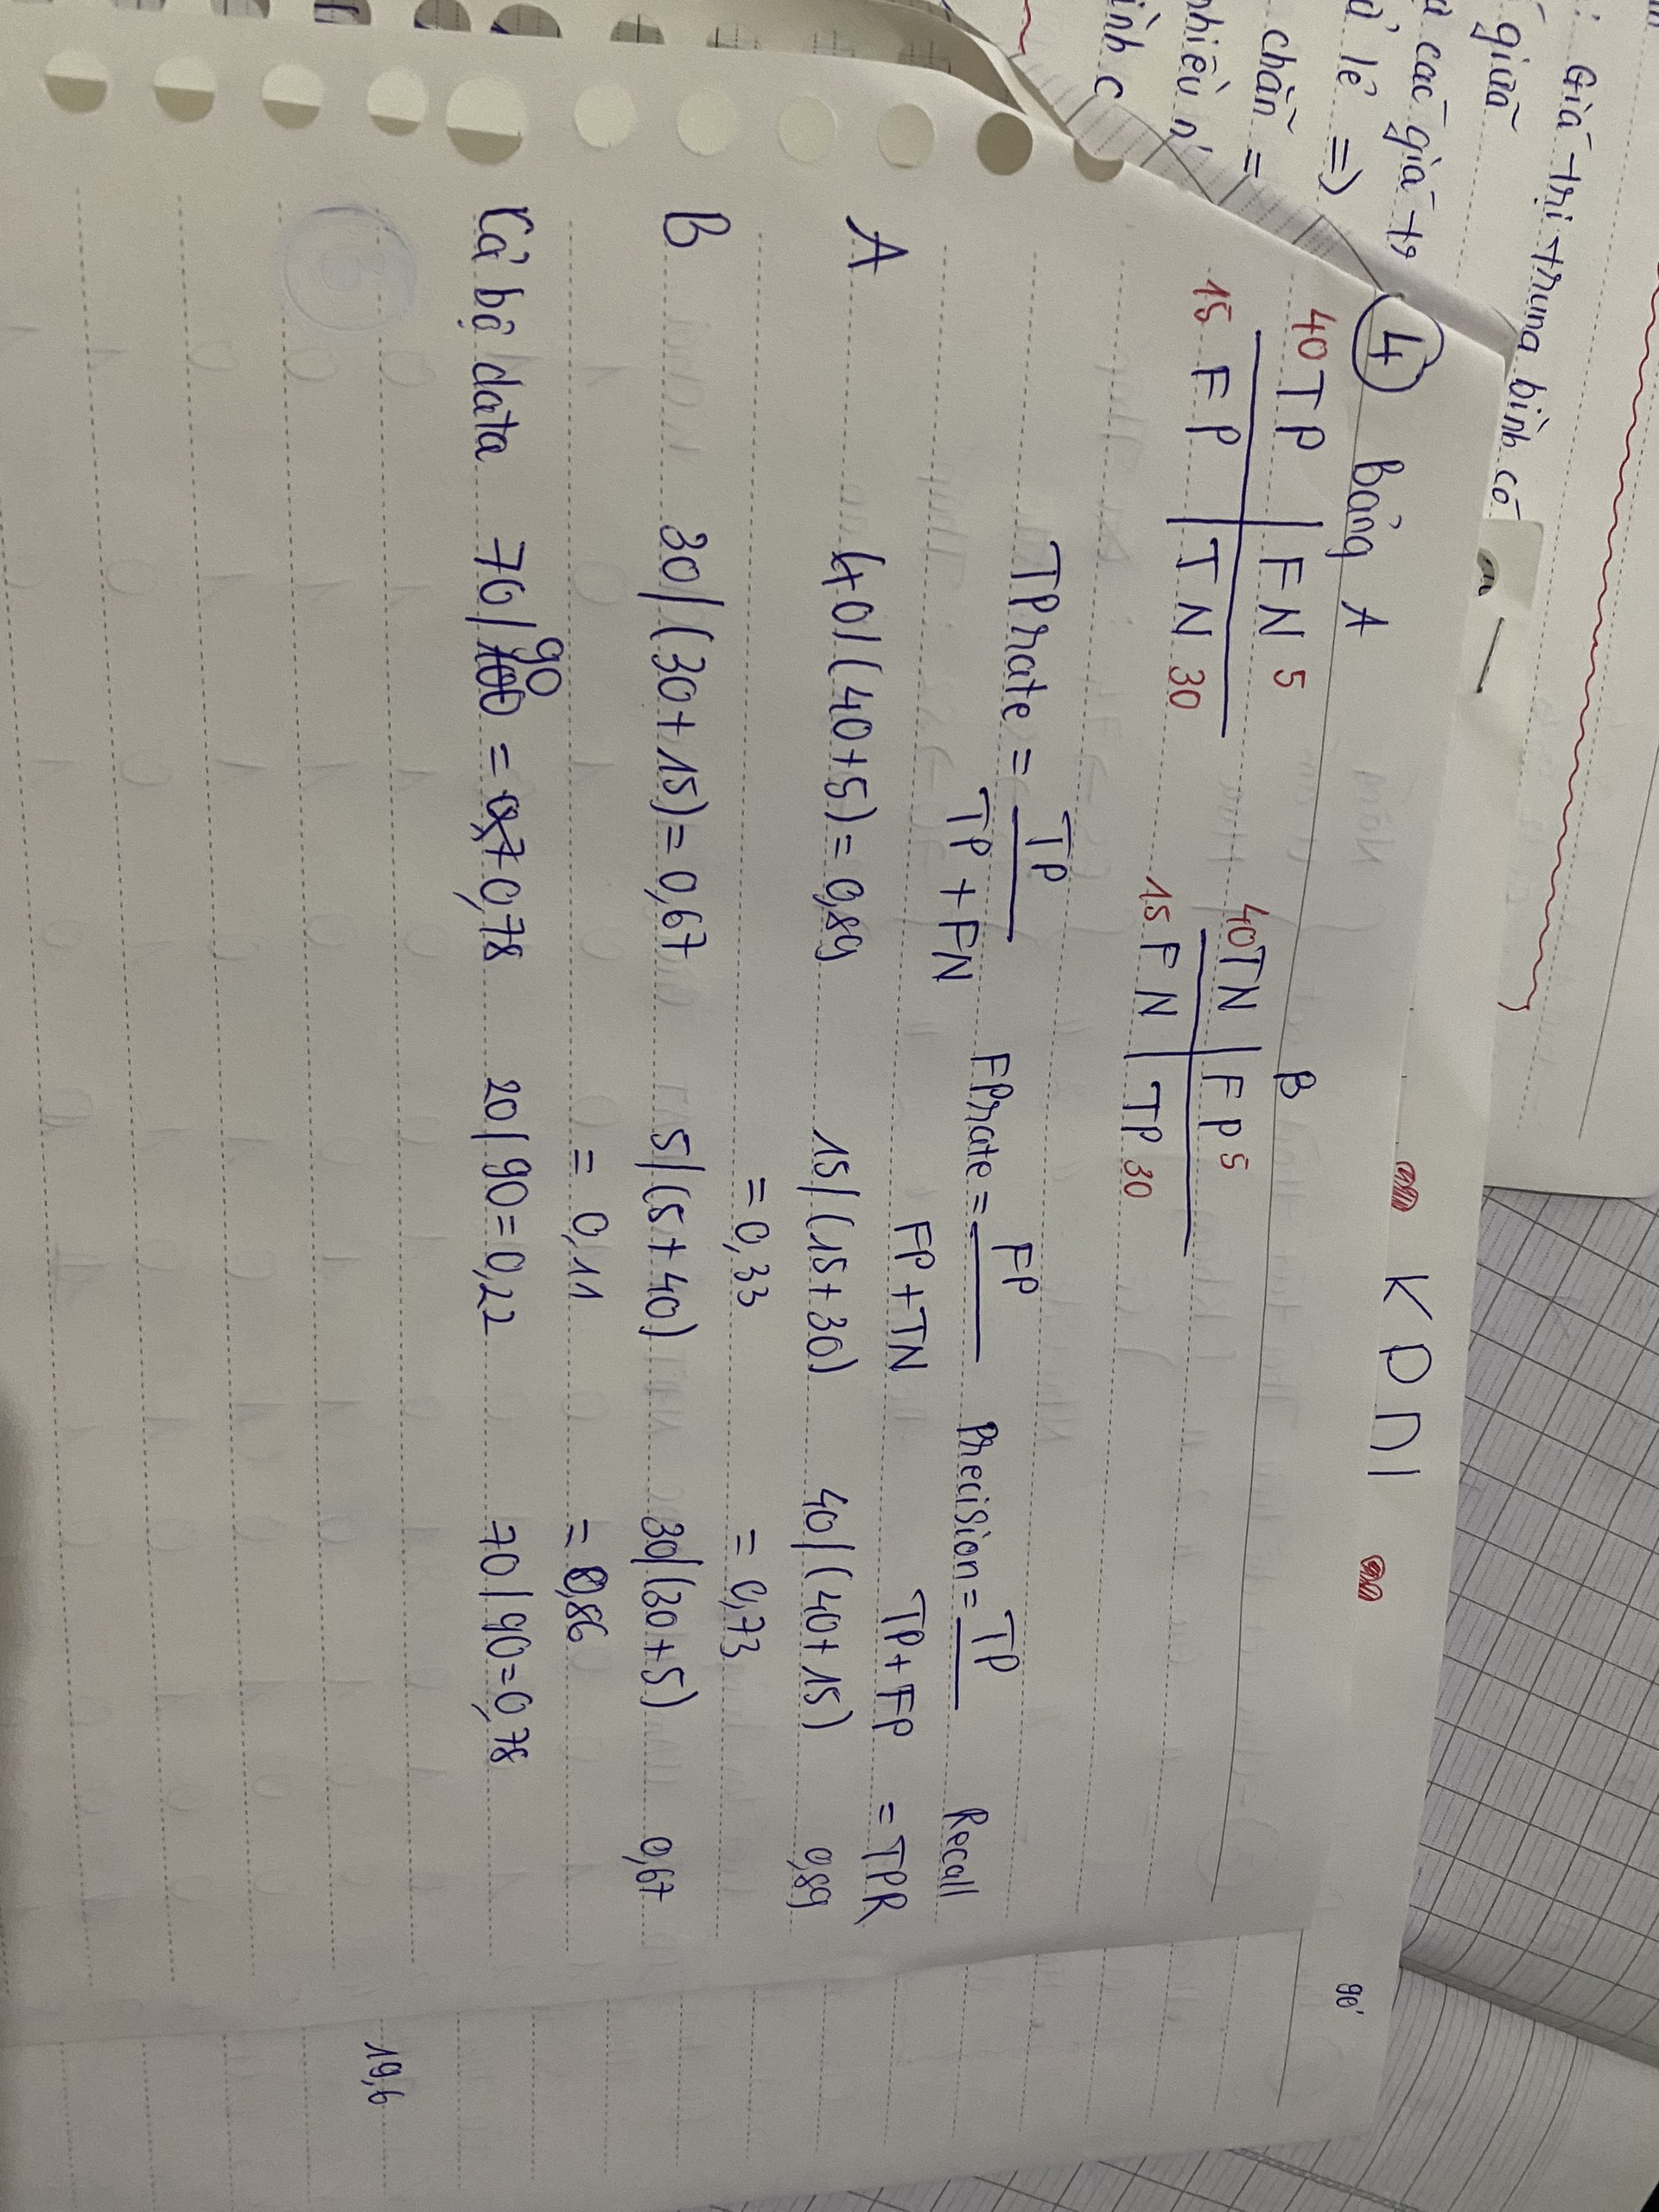 : Giá trị trung bình có
giữa
các giá trị
lẻ =>
chẵn =
nhiều
ình c
KDDI
④ Bảng A
B
40 TP | FN 5
15 FP | TN 30
40 TN | FP 5
15 FN | TP 30
TPrate = TP / TP + FN
FPrate = FP / FP + TN
Precision = TP / TP + FP
Recall = TPR
A 40/(40+5) = 0,89 15/(15+30) 40/(40+15) 0,89
= 0,33 = 0,73
B 30/(30+15) = 0,67 5/(5+40) 30/(30+5) 0,67
= 0,11 = 0,86
Cả bộ data 70/90 = 0,78 20/90 = 0,22 70/90 = 0,78
19,6